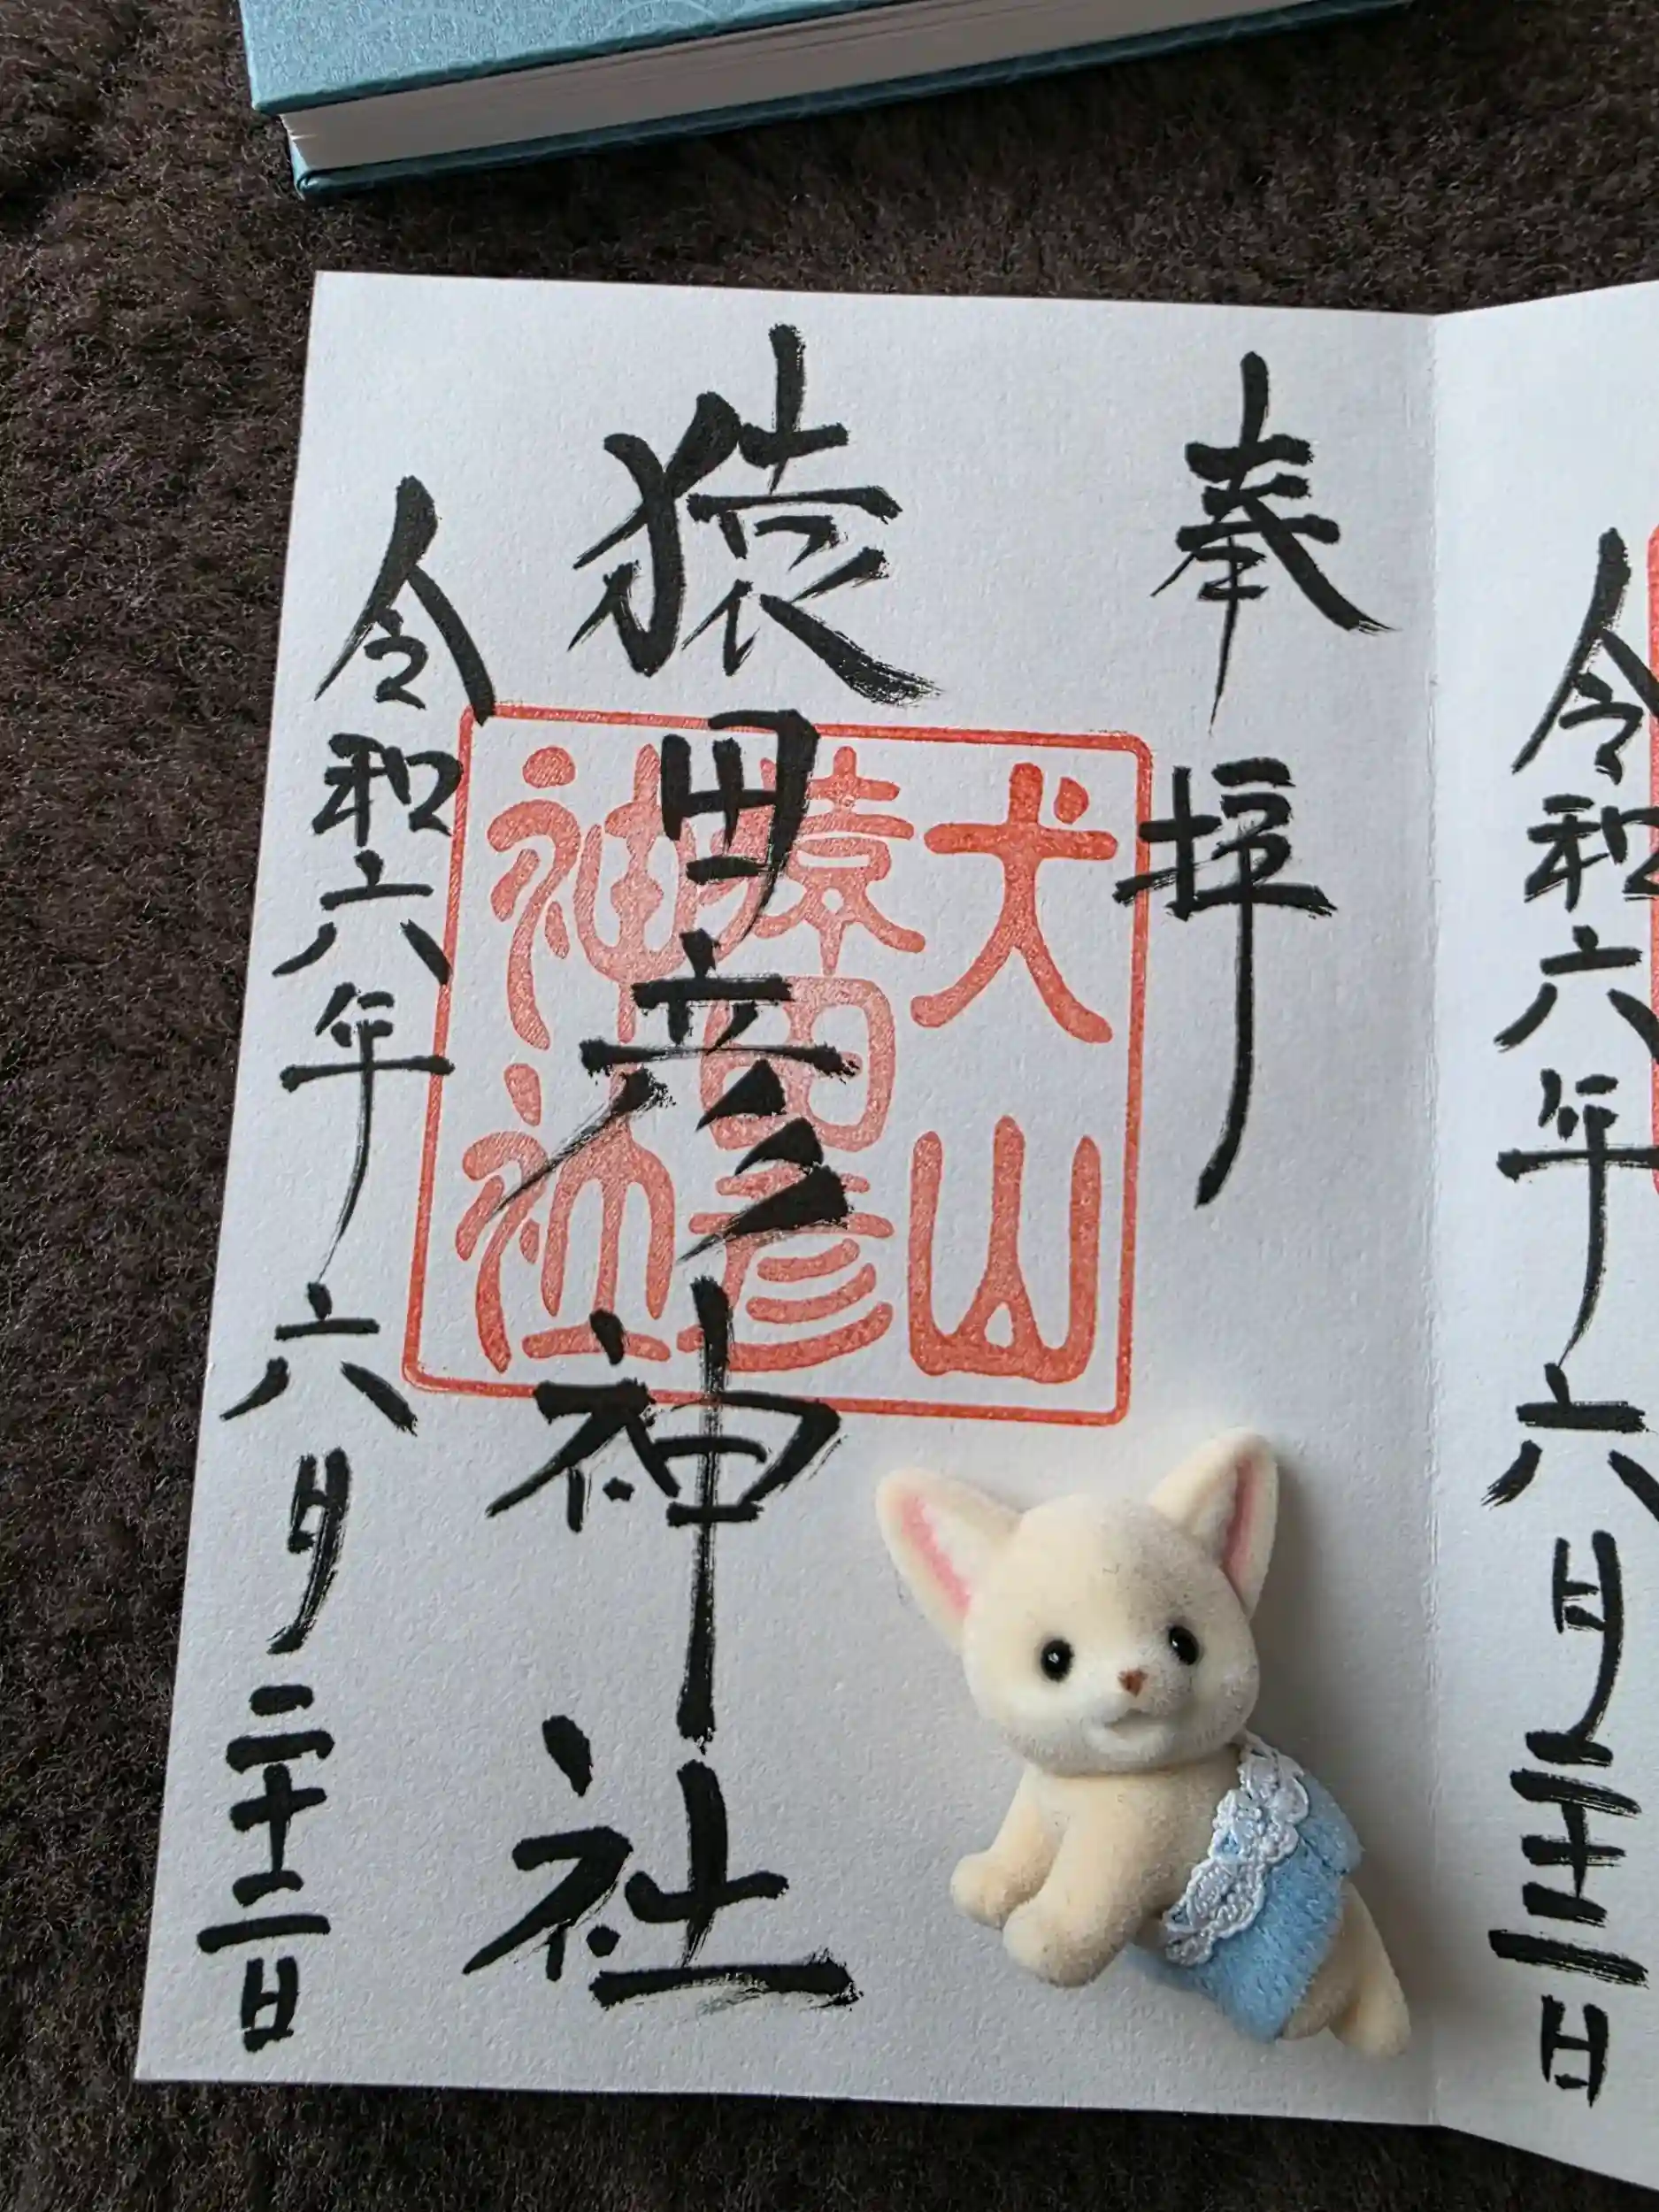 令和六年六月二十二日
奉拝
猿田彦神社
犬山
猿田彦
神社
令和六年六月二十二日